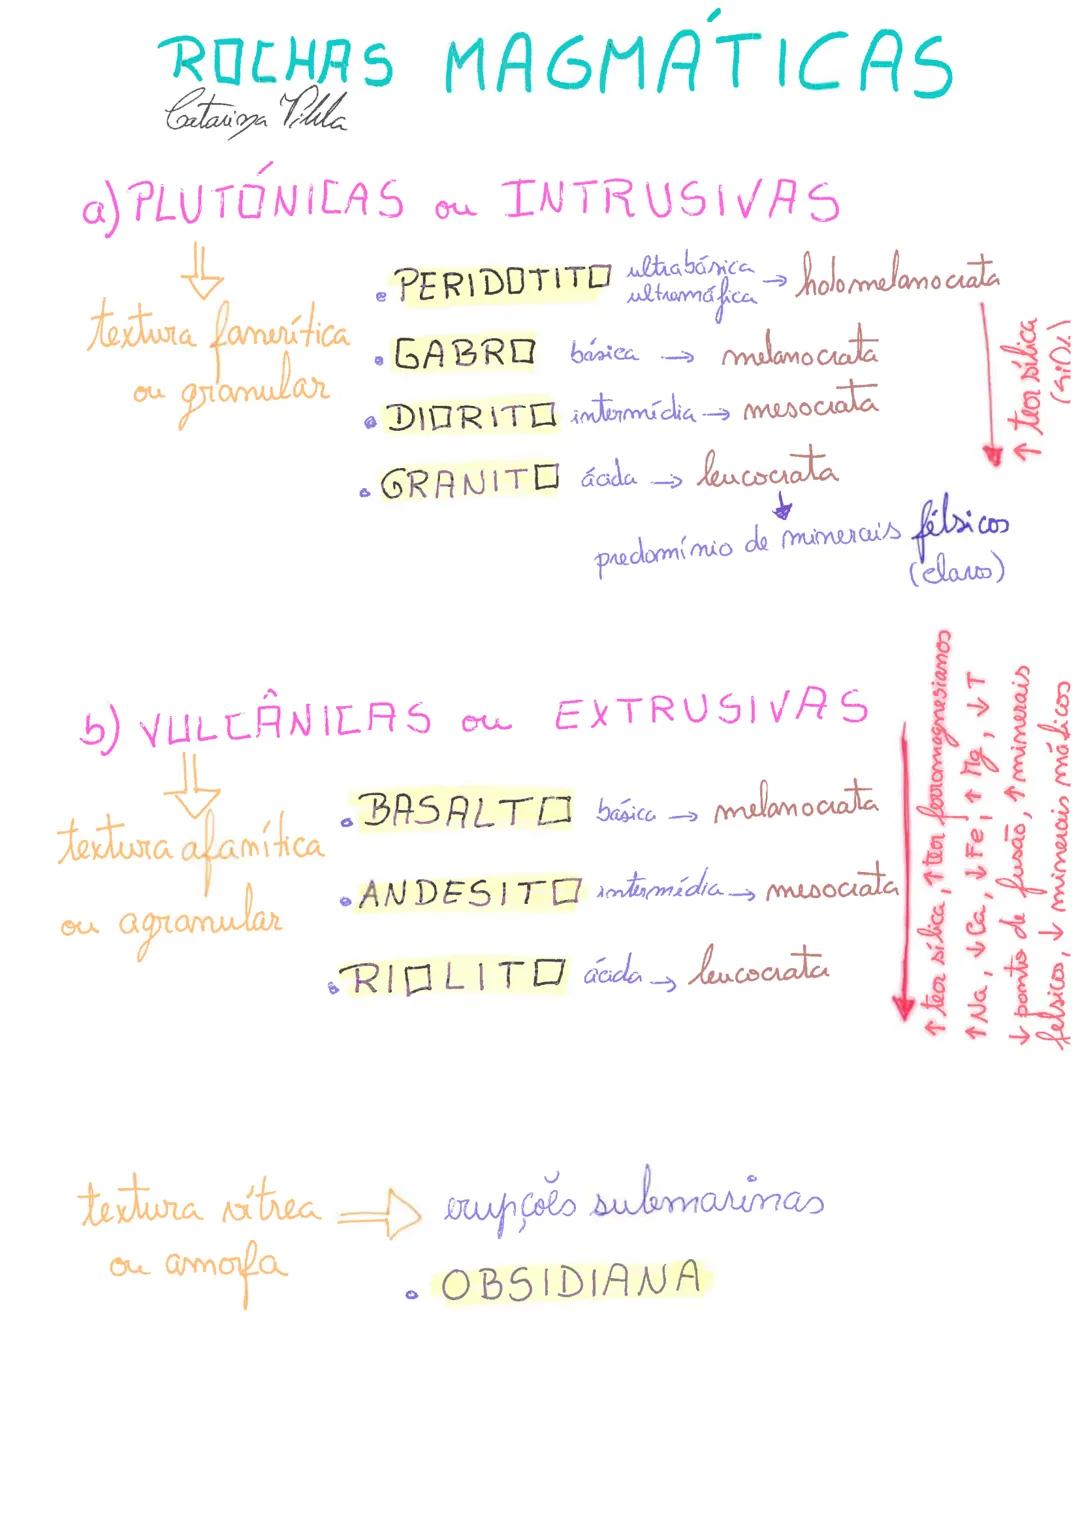 ROCHAS MAGMÁTICAS
Catarina
a) PLUTÓNICAS ou INTRUSIVAS
textura fanerítica
ou granular
• PERIDOTITO ultrabásica ultramáfica → holomelanocrata
• GABRO básica → melanocrata
• DIORITO intermédia → mesocrata
• GRANITO ácida → leucocrata
predomínio de minerais félsicos
(claros)
↑ teor sílica
(SiO₂)
b) VULCÂNICAS ou EXTRUSIVAS
textura afanítica
ou agranular
• BASALTO básica → melanocrata
• ANDESITO intermédia → mesocrata
• RIOLITO ácida → leucocrata
↑ teor sílica, ↑ teor ferromagnesianos
↑ Na, ↓ Ca, ↓ Fe; ↑ Mg, ↓ T
↓ ponto de fusão, ↑ minerais
félsicos, ↓ minerais máficos
textura vítrea ⇒ erupções submarinas
ou amorfa
• OBSIDIANA